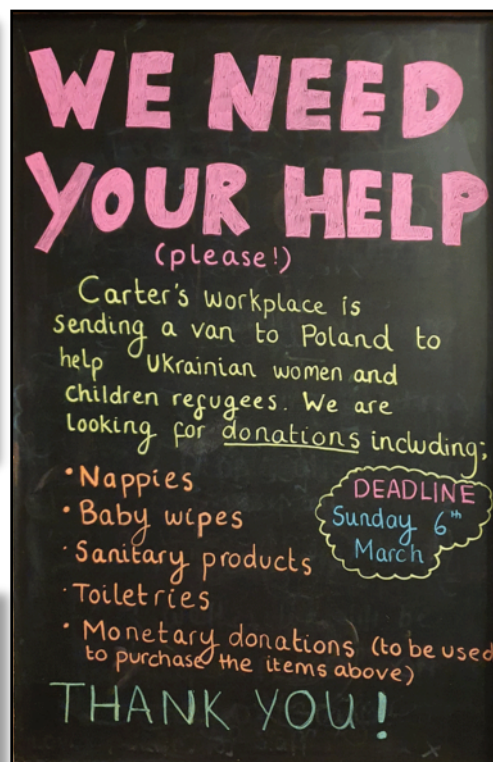 WE NEED
YOUR HELP
(please!)
Carter's workplace is
sending a van to Poland to
help Ukrainian women and
children refugees. We are
looking for donations including;
• Nappies
• Baby wipes
• Sanitary products
• Toiletries
• Monetary donations (to be used
to purchase the items above)
DEADLINE
Sunday 6th
March
THANK YOU!